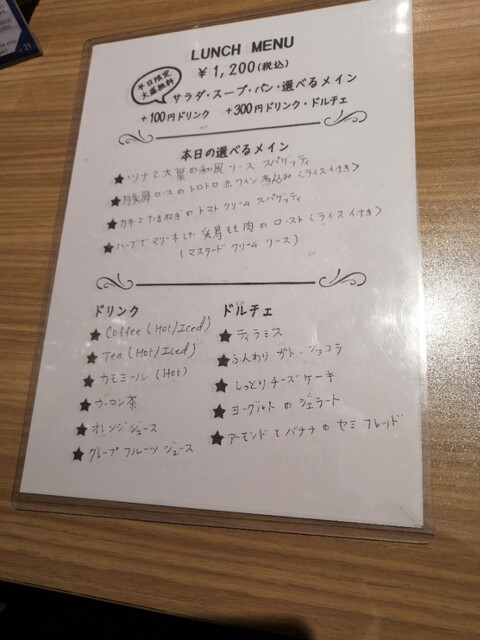 LUNCH MENU
平日限定
大盛無料
¥1,200(税込)
サラダ・スープ・パン・選べるメイン
+100円ドリンク +300円ドリンク・ドルチェ
本日の選べるメイン
★ツナと大葉の和風ソース スパゲッティ
★豚肩ロースのトロトロ赤ワイン煮込み(ライス付き)
★カキとたまねぎのトマトクリームスパゲッティ
★ハーブでマリネした鶏もも肉のロースト(ライス付き)
(マスタードクリームソース)
ドリンク
★Coffee (Hot/Iced)
★Tea (Hot/Iced)
★カモミール (Hot)
★ウーロン茶
★オレンジジュース
★グレープフルーツジュース
ドルチェ
★ティラミス
★ふんわりガトーショコラ
★しっとりチーズケーキ
★ヨーグルトのジェラート
★アーモンドとバナナのセミフレッド